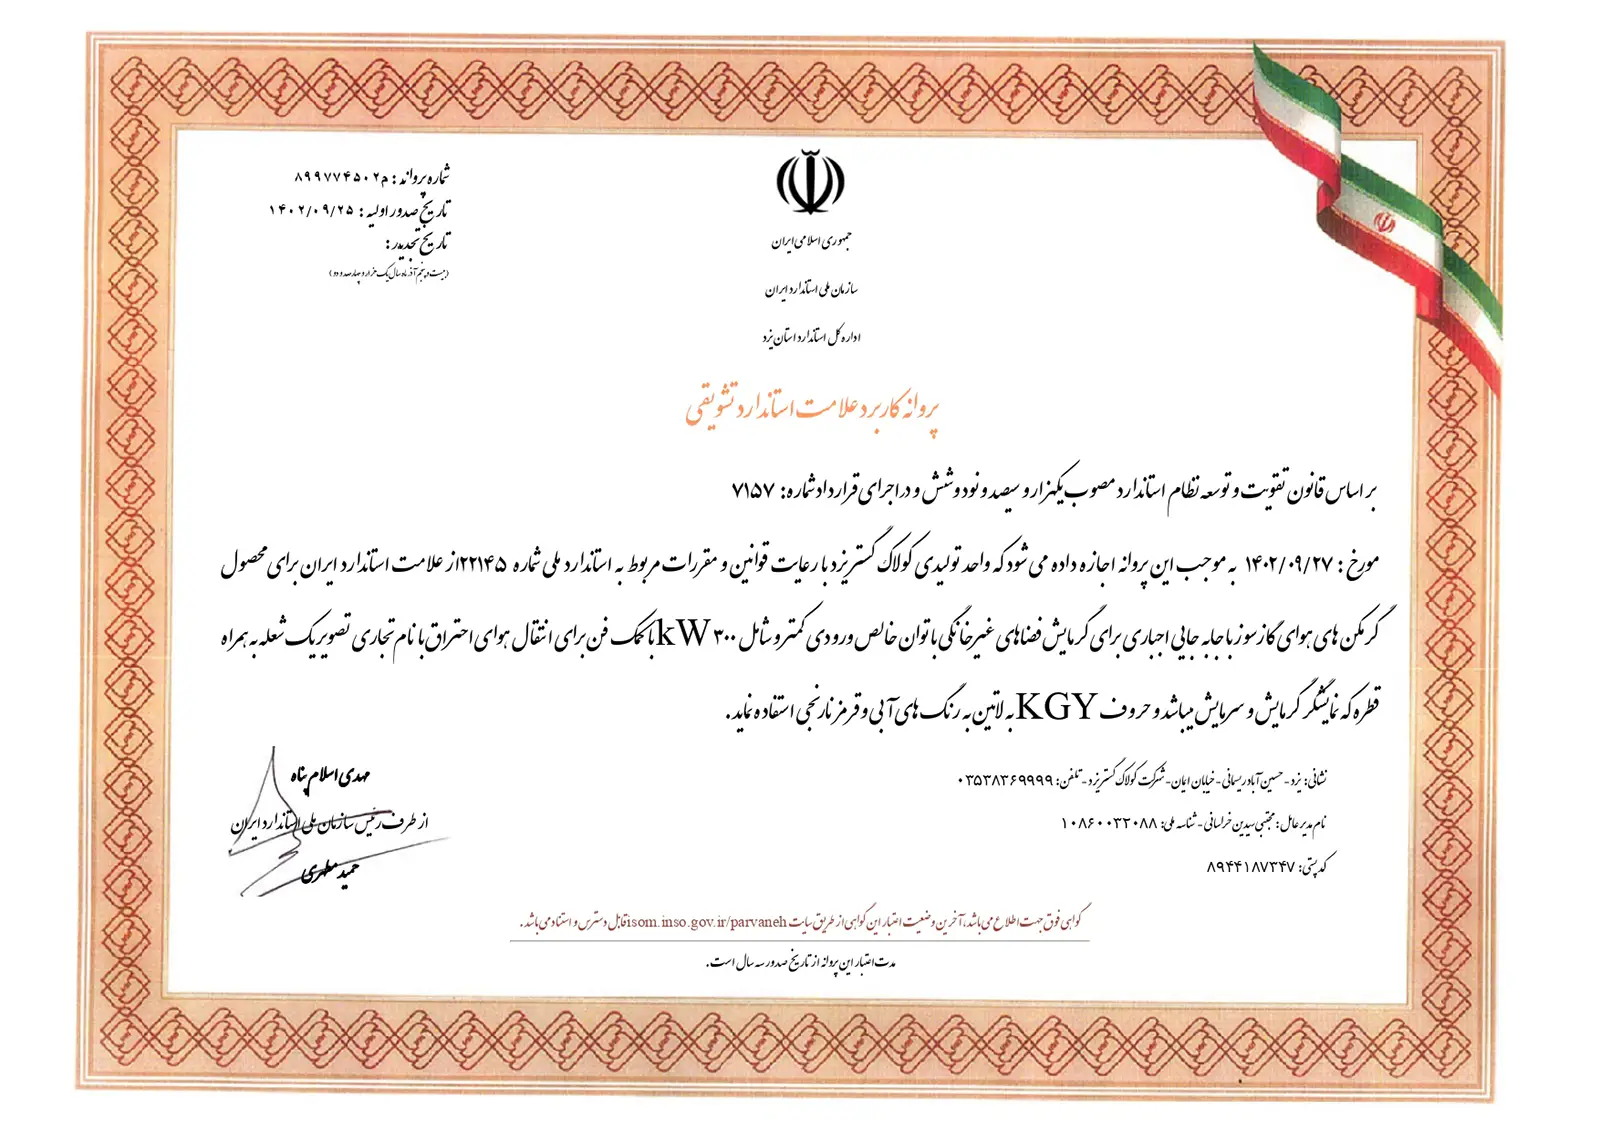 شماره پروانه : م۸۹۹۷۷۴۵۰۲
تاریخ صدور اولیه : ۱۴۰۲/۰۹/۲۵
تاریخ تجدید :
(بیست و پنجم آذر ماه سال یک هزار و چهارصد و دو)
جمهوری اسلامی ایران
سازمان ملی استاندارد ایران
اداره کل استاندارد استان یزد
پروانه کاربرد علامت استاندارد تشویقی
بر اساس قانون تقویت و توسعه نظام استاندارد مصوب یکهزار و سیصد و نود و شش و در اجرای قرارداد شماره: ۷۱۵۷
مورخ : ۱۴۰۲/۰۹/۲۷ به موجب این پروانه اجازه داده می شود که واحد تولیدی کولاک گستر یزد با رعایت قوانین و مقررات مربوط به استاندارد ملی شماره ۲۲۱۴۵از علامت استاندارد ایران برای محصول
گرمکن های هوای گازسوز با جابه جایی اجباری برای گرمایش فضاهای غیرخانگی با توان خالص ورودی کمتر و شامل ۳۰۰ kWبا کمک فن برای انتقال هوای احتراق با نام تجاری تصویر یک شعله به همراه
قطره که نمایشگر گرمایش و سرمایش میباشد و حروف KGY به لاتین به رنگ های آبی و قرمز نارنجی استفاده نماید .
نشانی: یزد - حسین آباد ریسمانی - خیابان ایمان - شرکت کولاک گستر یزد - تلفن: ۰۳۵۳۸۳۶۹۹۹۹
نام مدیر عامل : مجتبی سیدین خراسانی - شناسه ملی: ۱۰۸۶۰۰۳۲۰۸۸
کد پستی: ۸۹۴۴۱۸۷۳۴۷
مهدی اسلام پناه
از طرف رئیس سازمان ملی استاندارد ایران
حمید مطهری
گواهی فوق جهت اطلاع می باشد، آخرین وضعیت اعتبار این گواهی از طریق سایت isom.inso.gov.ir/parvanehقابل دسترس و استناد می باشد .
مدت اعتبار این پروانه از تاریخ صدور سه سال است .